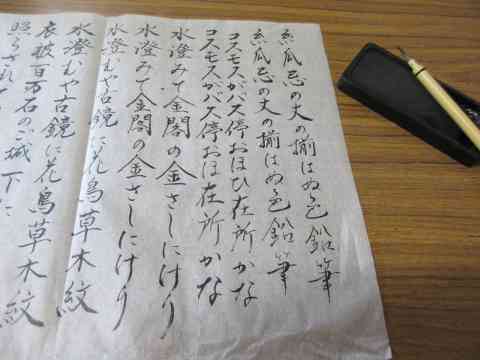 糸瓜忌の丈の揃はぬ色鉛筆
糸瓜忌の丈の揃はぬ色鉛筆
コスモスがバス停おほひ在所かな
コスモスがバス停おほひ在所かな
水澄みて金閣の金さしにけり
水澄みて金閣の金さしにけり
水澄むや古鏡に花鳥草木紋
水澄むや古鏡に花鳥草木紋
衣被百万石のご城下に
照らされて